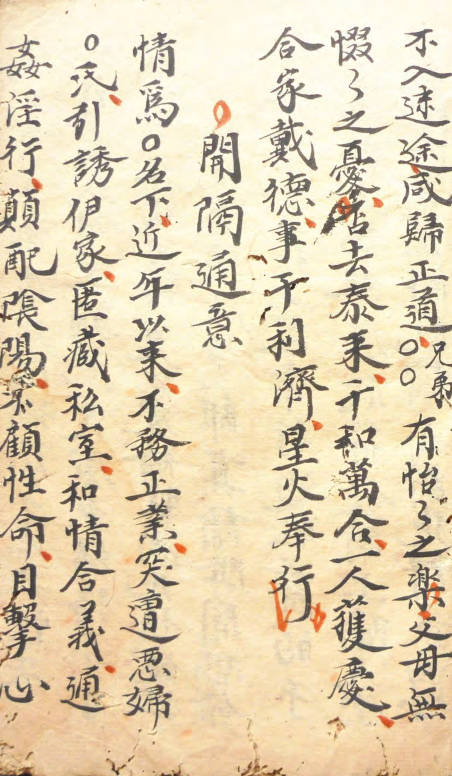 不入迷途咸歸正道兄弟○○有怡〻之樂父母無
惙〻之憂否去泰来千和萬合一人獲慶
合家戴德事干利濟星火奉行
開隔通意
情爲○名下近年以来不務正業突遭悪婦
○氏引誘伊家匿藏私室和情合義通
姦淫行顛配陰陽不顧性命目擊心